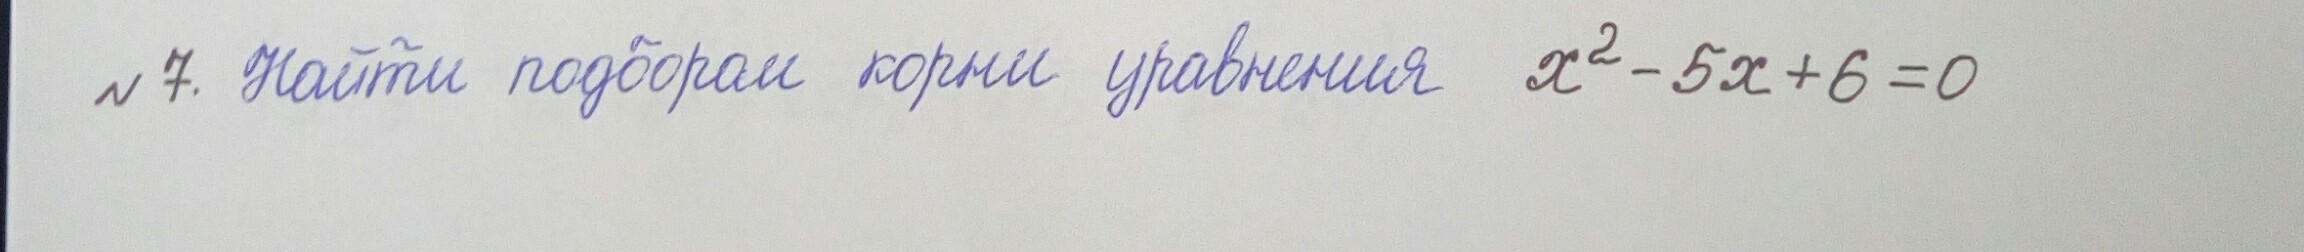 № 7. Найти подбором корни уравнения x² - 5x + 6 = 0